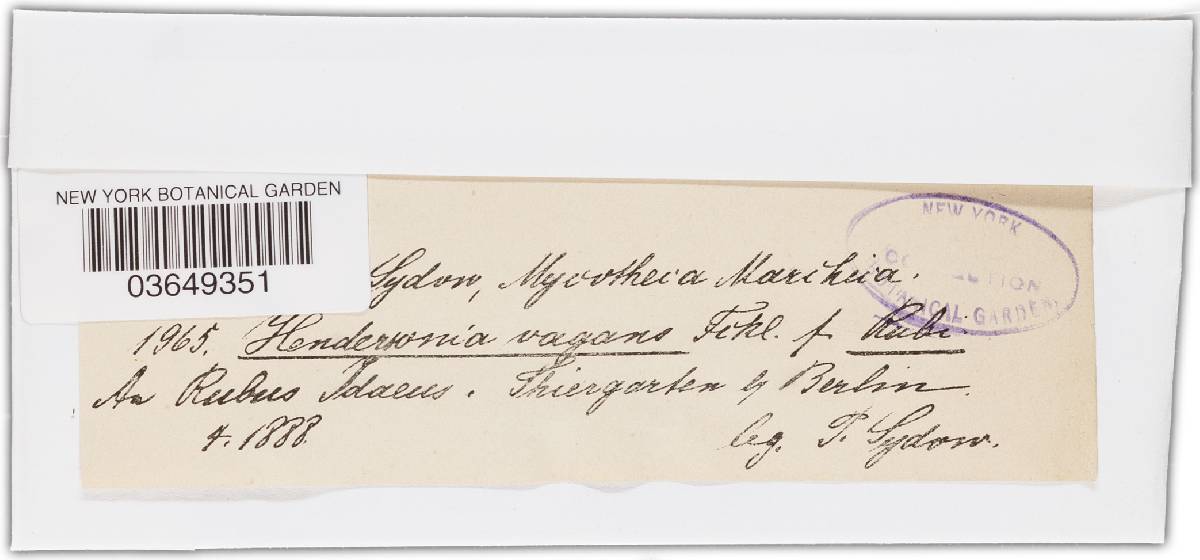 NEW YORK BOTANICAL GARDEN
03649351
NEW YORK
BOTANICAL GARDEN
Sydow, Mycotheca Marchica.
1965. Hendersonia vagans Fckl. f. Rubi
An Rubus Idaeus. Thiergarten b/ Berlin.
4. 1888.
leg. P. Sydow.